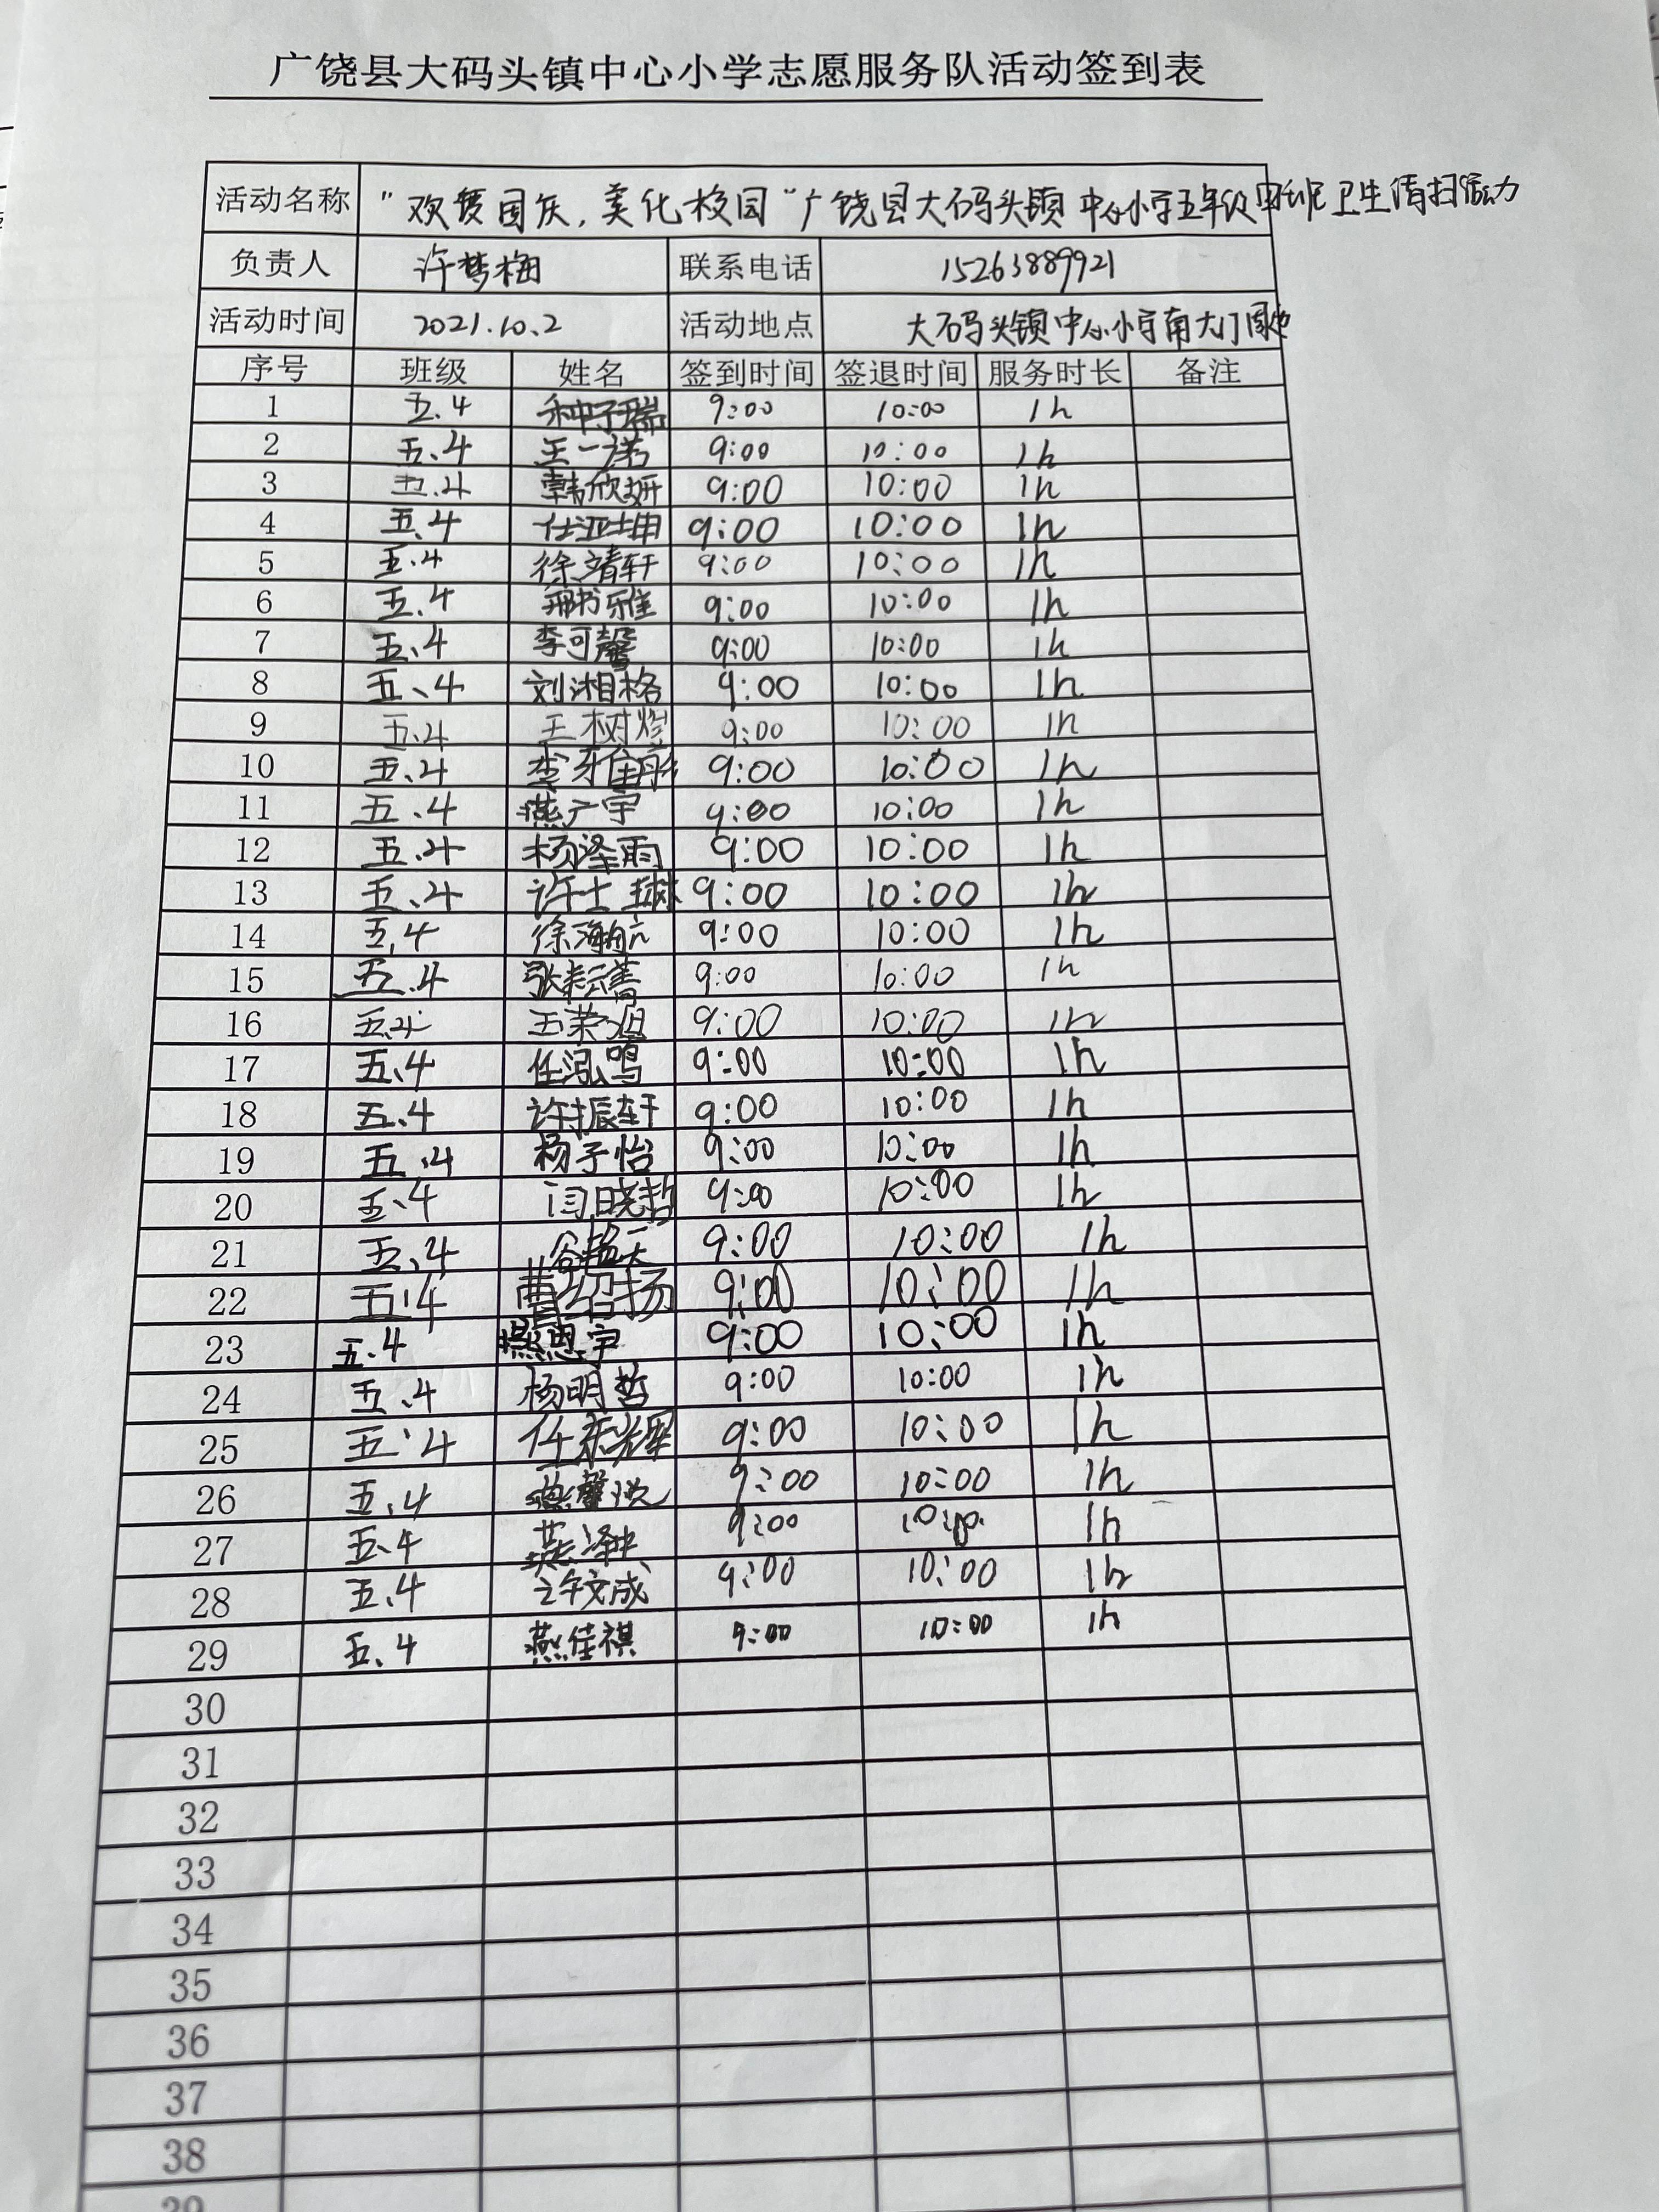 广饶县大码头镇中心小学志愿服务队活动签到表
活动名称 "欢度国庆,美化校园"广饶县大码头镇中心小学五年级四班卫生清扫活动
负责人 许梦梅 联系电话 15263889921
活动时间 2021.10.2 活动地点 大码头镇中心小学南大门周边
序号 班级 姓名 签到时间 签退时间 服务时长 备注
1 五.4 种子瑞 9:00 10:00 1h
2 五.4 王一诺 9:00 10:00 1h
3 五.4 韩欣妍 9:00 10:00 1h
4 五.4 任亚坤 9:00 10:00 1h
5 五.4 徐靖轩 9:00 10:00 1h
6 五.4 书雅 9:00 10:00 1h
7 五.4 李可馨 9:00 10:00 1h
8 五、4 刘湘格 9:00 10:00 1h
9 五.4 王树 9:00 10:00 1h
10 五.4 李 9:00 10:00 1h
11 五.4 燕广宇 9:00 10:00 1h
12 五.4 杨泽雨 9:00 10:00 1h
13 五、4 许士琳 9:00 10:00 1h
14 五.4 徐瀚航 9:00 10:00 1h
15 五.4 张耘菁 9:00 10:00 1h
16 五.4 王荣 9:00 10:00 1h
17 五、4 任泓鸣 9:00 10:00 1h
18 五、4 许振轩 9:00 10:00 1h
19 五.4 杨子怡 9:00 10:00 1h
20 五、4 闫晓哲 9:00 10:00 1h
21 五.4 天 9:00 10:00 1h
22 五.4 曹绍扬 9:00 10:00 1h
23 五.4 燕恩宇 9:00 10:00 1h
24 五、4 杨明哲 9:00 10:00 1h
25 五.4 任家辉 9:00 10:00 1h
26 五.4 燕馨悦 9:00 10:00 1h
27 五、4 燕泽 9:00 10:00 1h
28 五.4 许文成 9:00 10:00 1h
29 五、4 燕佳祺 9:00 10:00 1h
30
31
32
33
34
35
36
37
38
39